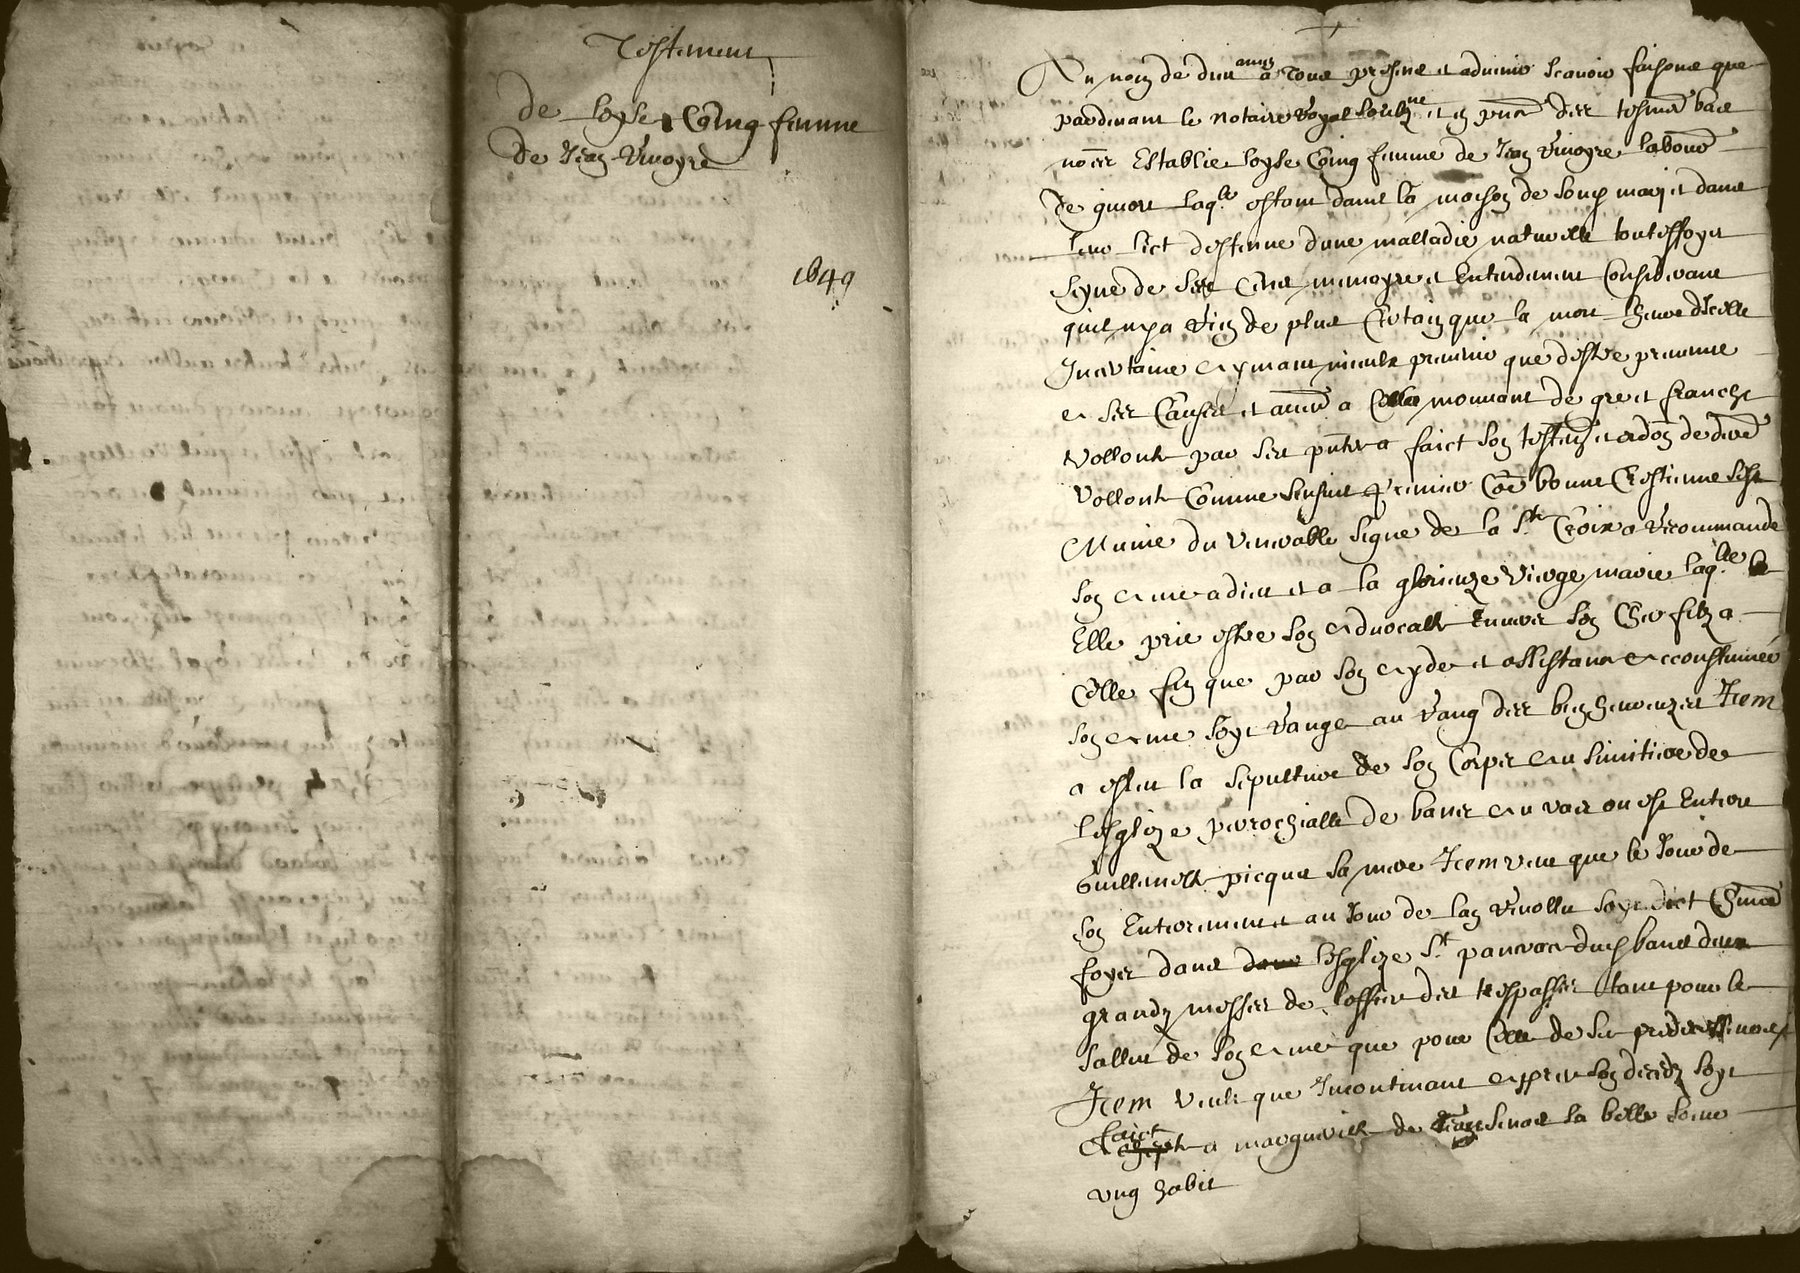 Testement
de loyse Coing femme
de Jean Vinoyre
1649
Au nom de dieu amen a tous presens et advenir scavoir faisons que
pardevant le notaire royal soubzne et en pnce des tesmoins bas
nomes Establie loyse Coing femme de Jean Vinoyre labour
de laqle estant dans la maison de song mary et dans
leur lict destenue dune malladie naturelle touteffoys
seyne de ses cens memoyre et Entendement Considerant
quil ny a rien de plus Certain que la mort lheure dicelle
Incertaine aymant mieulx prevenir que destre prevenue
a ses Causes et mouvant de gre et franche
vollonte par ses pntes a faict son testemt et ordon de der
vollonte Comme sensuit premier Coe bonne Crestienne sest
Munie du venerable signe de la Ste Croix a recommande
son ame a dieu et a la glorieuze vierge marie laqlle
Elle prie estre son advocatte Envers son Cher filz a
Celle fin que par son ayde et assistance accoustumee
son ame soyt range au rang des bienheureuzes Item
a esleu la sepulture de son Corps au simitiere de
lesglize parrochialle de bans au vas ou est Enterre
Guillemette picque sa mere Item veut que le Jour de
son Enterrement et au Jour de lan revollu soyt dict
foyes dans lesglize St pancrace dudy bans deux
grandz messes de loffice des trespasses tant pour le
sallut de son ame que pour Celle de ses predecesseurs
Item veult que Incontinant appres son deces soyt
faict
a marguerite de sa belle seur
ung habit